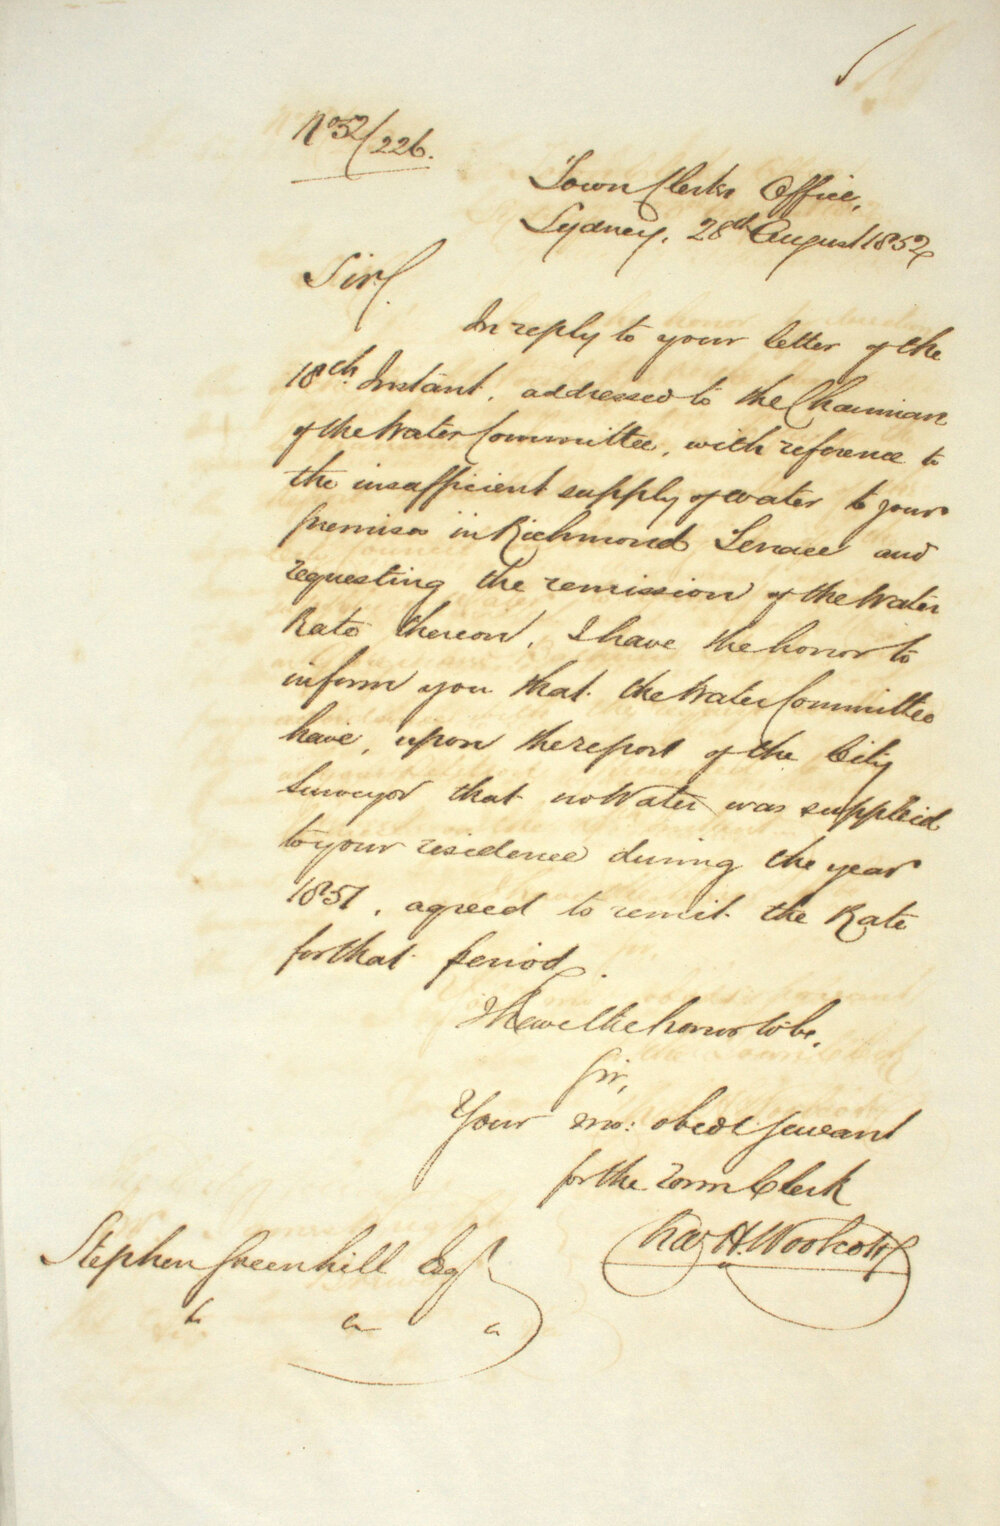 No 52/226.
Town Clerks Office,
Sydney, 28th August 1852
Sir,
In reply to your letter of the
18th Instant, addressed to the Chairman
of the Water Committee, with reference to
the insufficient supply of water to your
premises in Richmond Terrace and
requesting the remission of the Water
Rate thereon, I have the honor to
inform you that the Water Committee
have, upon the report of the City
Surveyor that no Water was supplied
to your residence during the year
1851, agreed to remit the Rate
for that period.
I have the honor to be,
Sir,
Your mo: obedt servant
for the Town Clerk
Chas H. Woolcott
Stephen Greenhill Esqr